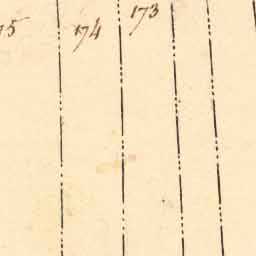 174 173